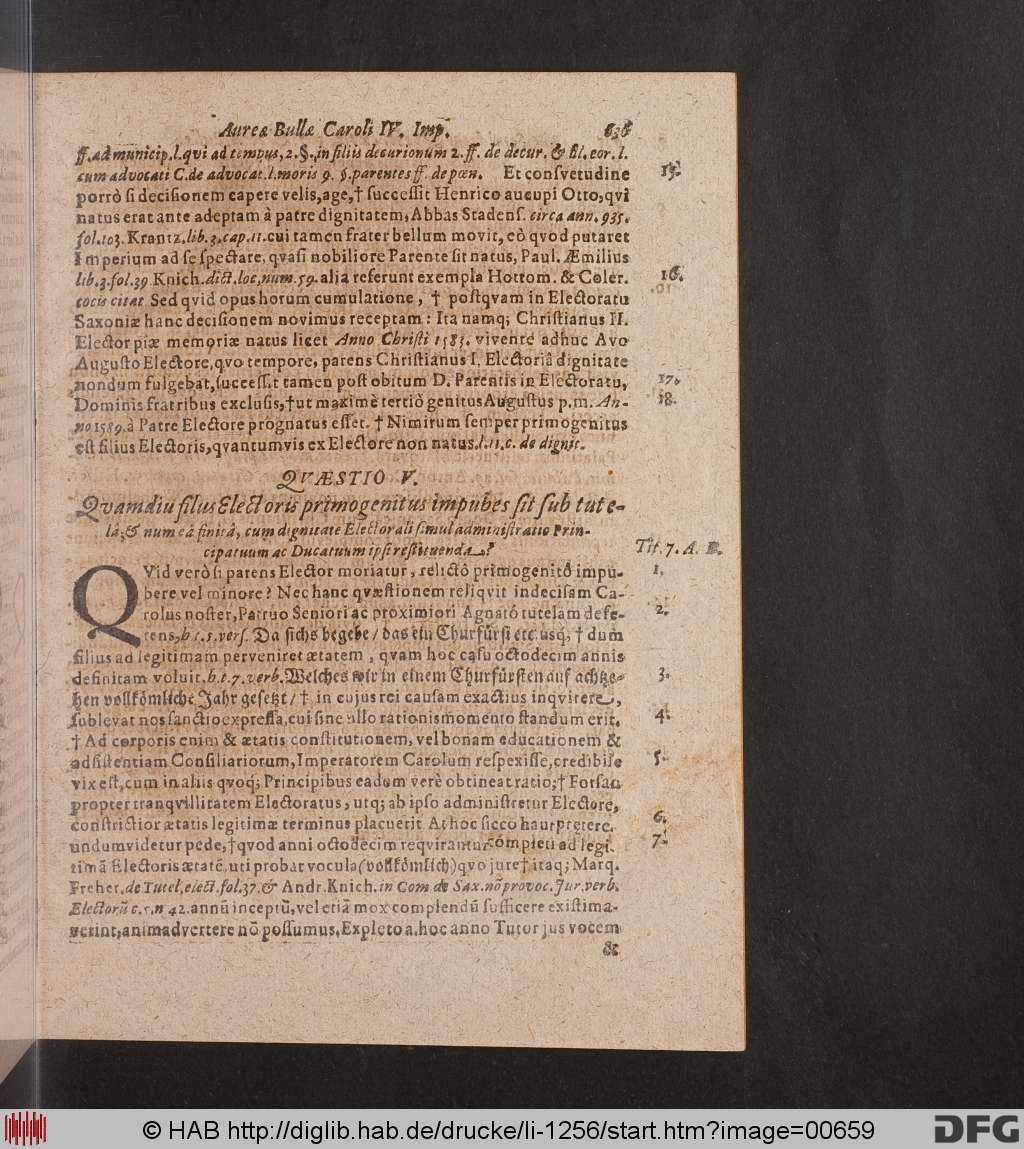 Aureæ Bullæ Caroli IV. Imp. 636
ff. ad municip. l. qui ad tempus, 2. §. in filiis decurionum 2. ff. de decur. & fil. eor. l.
cum advocati C. de advocat. l. moris 9. §. parentes ff. de pœn. Et consvetudine 15.
porrò si decisionem capere velis, age, † successit Henrico aucupi Otto, qvi
natus erat ante adeptam à patre dignitatem, Abbas Stadens. circa ann. 935.
fol. 103. Krantz. lib. 3. cap. 11. cui tamen frater bellum movit, eò qvod putaret
Imperium ad se spectare, qvasi nobiliore Parente sit natus, Paul. Æmilius
lib. 3. fol. 39 Knich. dict. loc. num. 59. alia referunt exempla Hottom. & Coler. 16.
locis citat Sed qvid opus horum cumulatione, † postqvam in Electoratu
Saxoniæ hanc decisionem novimus receptam: Ita namq; Christianus II.
Elector piæ memoriæ natus licet Anno Christi 1583. vivente adhuc Avo
Augusto Electore, qvo tempore, parens Christianus I. Electoriâ dignitate
nondum fulgebat, successit tamen post obitum D. Parentis in Electoratu, 17.
Dominis fratribus exclusis, † ut maximè tertiò genitus Augustus p. m. An- 18.
no 1589. à Patre Electore prognatus esset. † Nimirum semper primogenitus
est filius Electoris, qvantumvis ex Electore non natus. l. 11. c. de dignit.
QVÆSTIO V.
Qvamdiu filus Electoris primogenitus impubes sit sub tute-
lâ; & num eâ finitâ, cum dignitate Electorali simul administratio Prin-
cipatuum ac Ducatuum ipsi restituenda? Tit. 7. A. B.
QVid verò si parens Elector moriatur, relictô primogenitô impu- 1.
bere vel minore? Nec hanc qvæstionem reliqvit indecisam Ca-
rolus noster, Patruo Seniori ac proximiori Agnatô tutelam defe- 2.
rens, h. t. 5. vers. Da sichs begebe / das ein Churfürst etc. usq; † dum
filius ad legitimam perveniret ætatem, qvam hoc casu octodecim annis
definitam voluit. h. t. 7. verb. Welches wir in einem Churfürsten auf achtze- 3.
hen vollkömliche Jahr gesetzt / † in cujus rei causam exactius inqvirere,
sublevat nos sanctio expressa, cui sine ullo rationis momento standum erit. 4.
† Ad corporis enim & ætatis constitutionem, vel bonam educationem &
adsistentiam Consiliariorum, Imperatorem Carolum respexisse, credibile 5.
vix est, cum in aliis qvoq; Principibus eadem verè obtineat ratio; † Forsan
propter tranqvillitatem Electoratus, utq; ab ipso administretur Electore,
constrictior ætatis legitimæ terminus placuerit At hoc sicco haut prætere- 6.
undum videtur pede, † qvod anni octodecim reqvirantur completi ad legi- 7.
timā Electoris ætatē, uti probat vocula (vollkömlich) qvo jure † itaq; Marq.
Freher. de Tutel. elect. fol. 37. & Andr. Knich. in Com. de Sax. nō provoc. Jur. verb.
Electorū c. 5. n 42. annū inceptū, vel etiā mox complendū sufficere existima-
verint, animadvertere nō possumus, Expleto a. hoc anno Tutor jus vocem
&
© HAB http://diglib.hab.de/drucke/li-1256/start.htm?image=00659
DFG